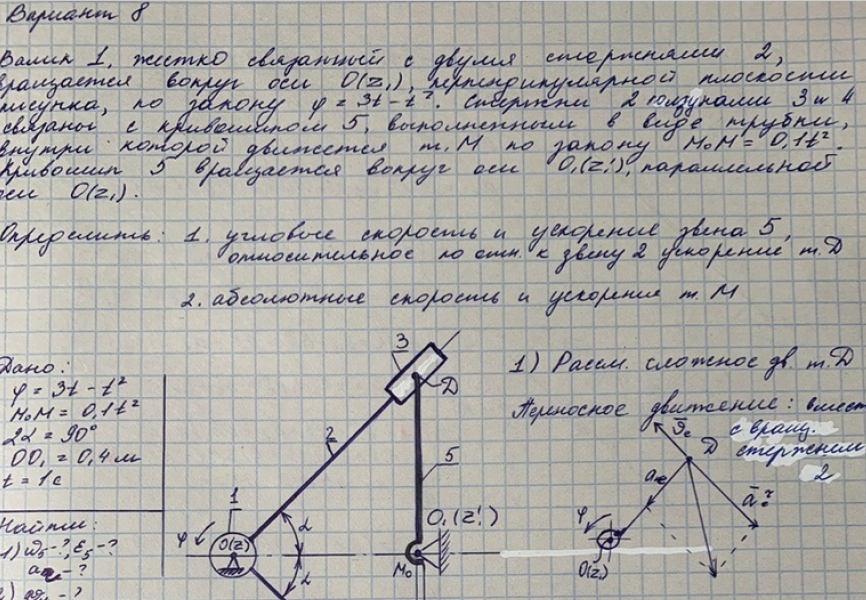 Вариант 8
Валик 1, жестко связанный с двумя стержнями 2,
вращается вокруг оси O(z₁), перпендикулярной плоскости
рисунка, по закону φ = 3t - t². Стержни 2 ползунами 3 и 4
связаны с кривошипом 5, выполненным в виде трубки,
внутри которой движется т. M по закону M₀M = 0,1t².
Кривошип 5 вращается вокруг оси O₁(z₁'), параллельной
оси O(z₁).
Определить: 1. угловые скорость и ускорение звена 5,
относительное по отн. к звену 2 ускорение т. D
2. абсолютные скорость и ускорение т. M
Дано:
φ = 3t - t²
M₀M = 0,1t²
2α = 90°
OO₁ = 0,4 м
t = 1 с
Найти:
1) ω₅ - ?, ε₅ - ?
3
D
2
5
1
φ
O(z)
α
α
O₁(z₁')
M₀
1) Рассм. сложное дв. т. D
Переносное движение: вмест
с вращ.
стержнем
2
D
φ
O(z₁)